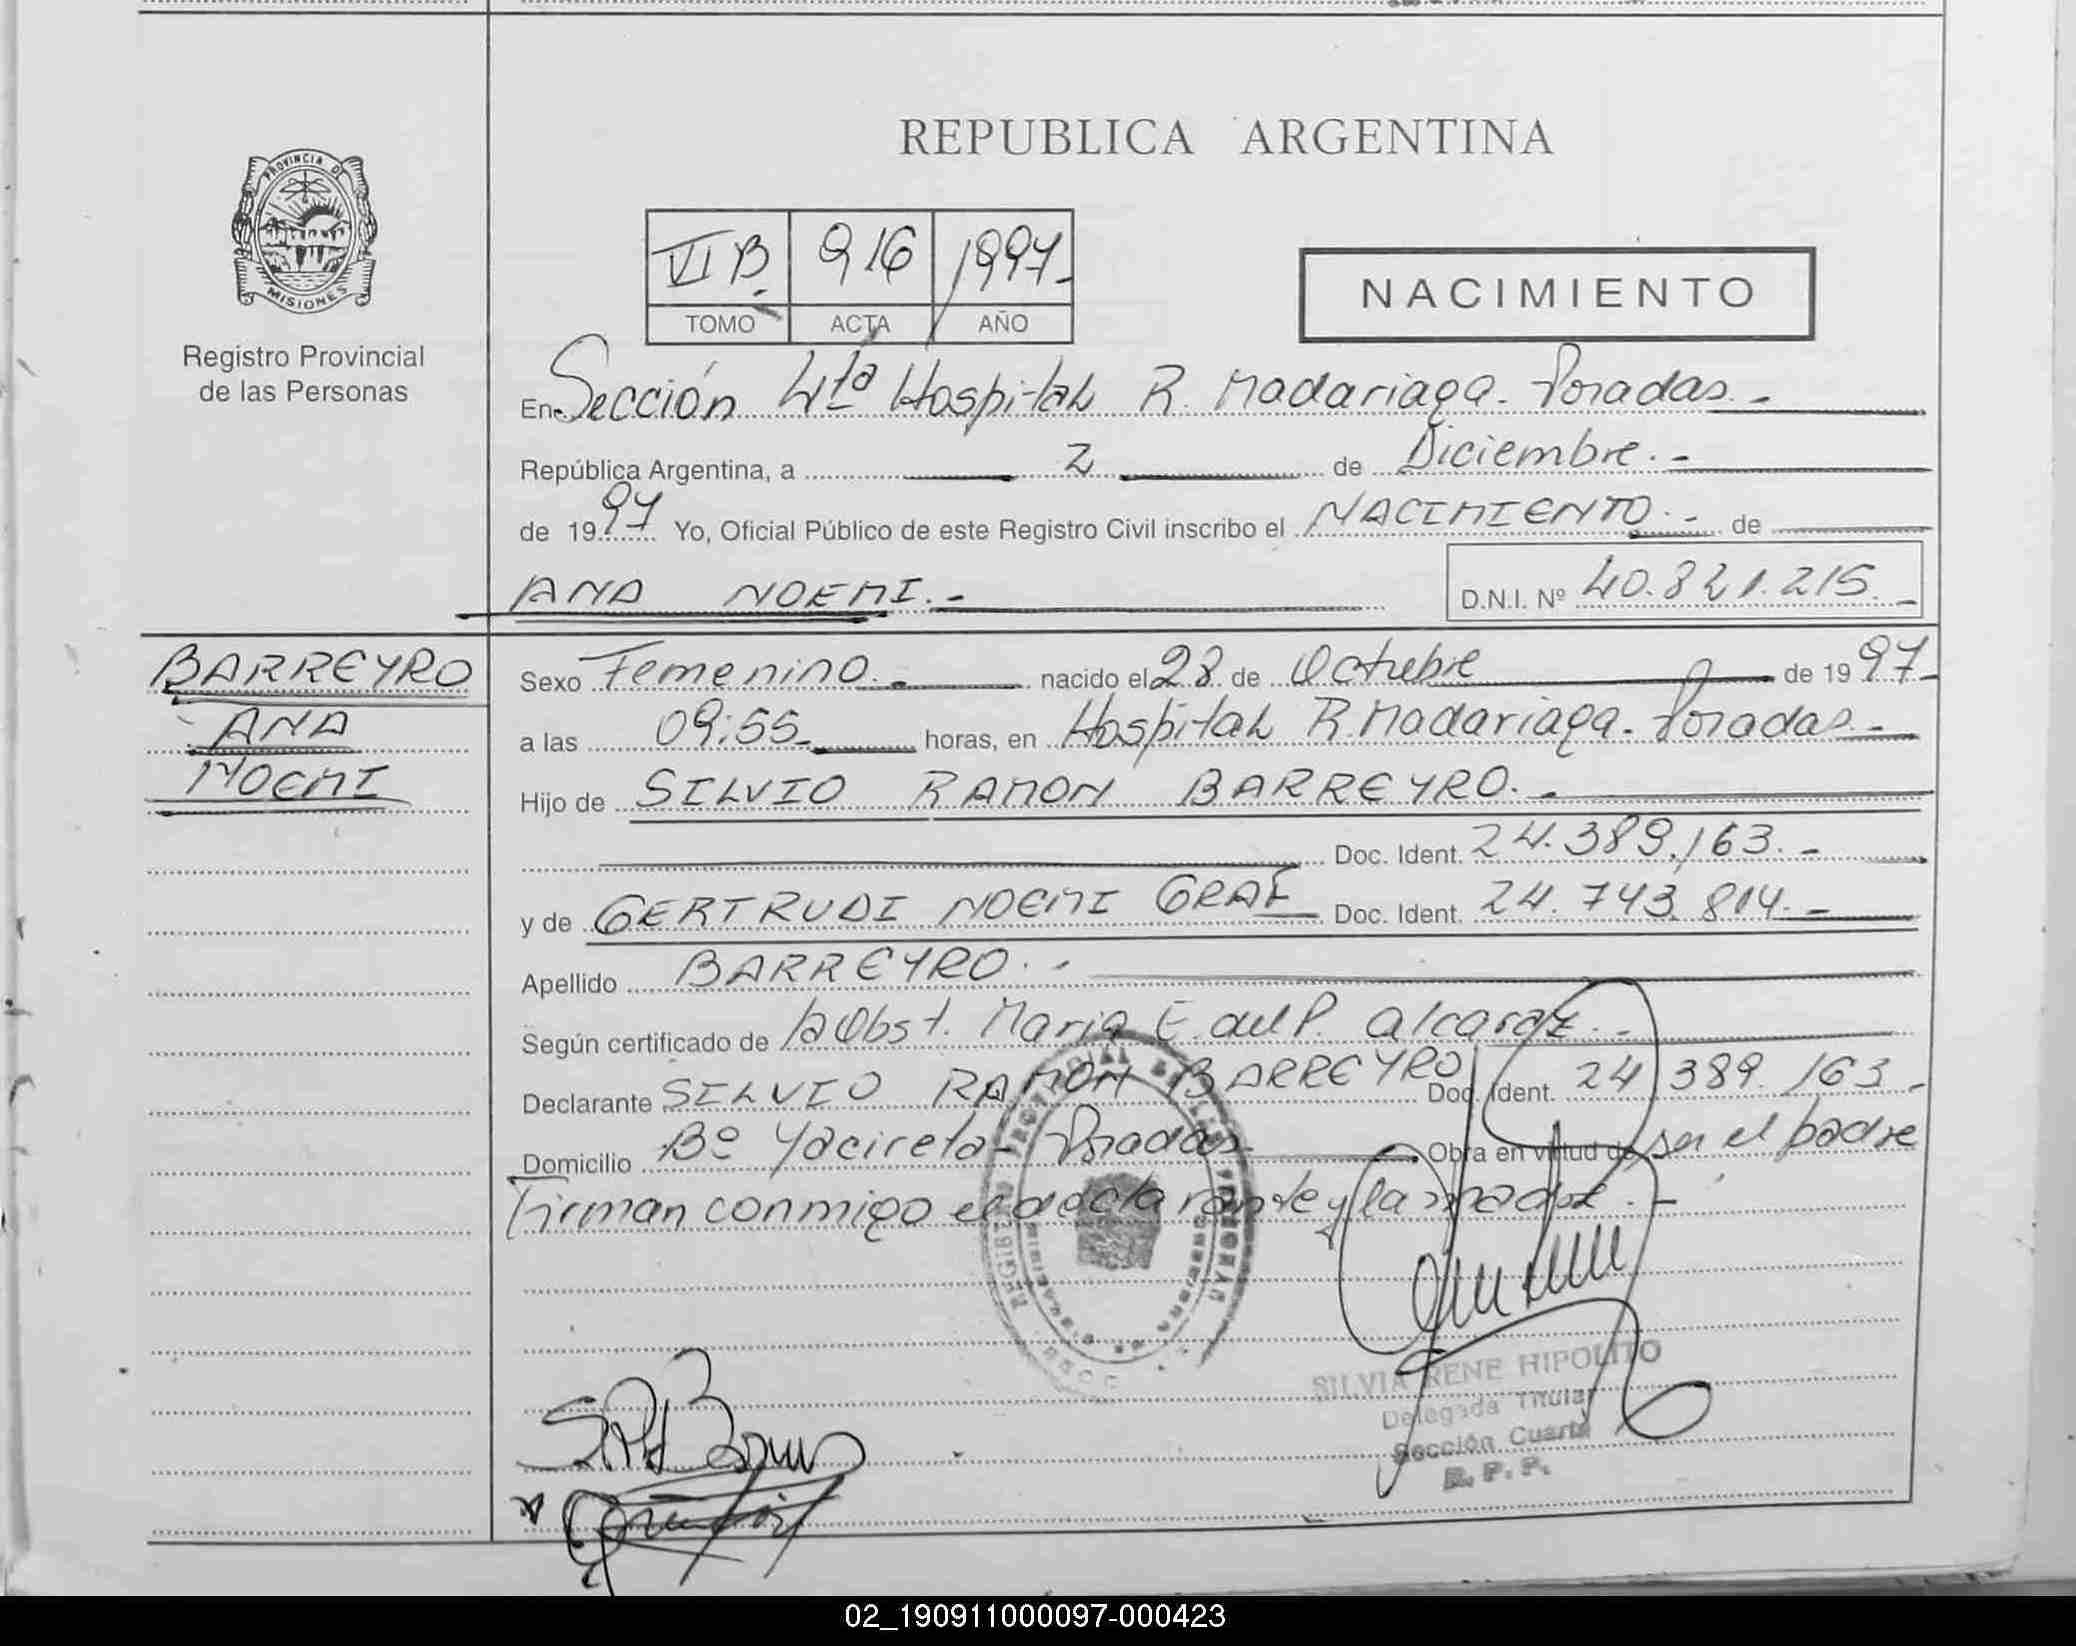 REPUBLICA ARGENTINA
PROVINCIA DE
MISIONES
Registro Provincial
de las Personas
VI B. 916 1997.-
TOMO ACTA AÑO
NACIMIENTO
En Sección 4ta Hospital R. Madariaga - Posadas.-
República Argentina, a 2 de Diciembre.-
de 1997 Yo, Oficial Público de este Registro Civil inscribo el NACIMIENTO.- de
ANA NOEMI.- D.N.I. Nº 40.821.215.-
BARREYRO
ANA
NOEMI
Sexo Femenino.- nacido el 28 de Octubre de 1997-
a las 09:55- horas, en Hospital R. Madariaga - Posadas.-
Hijo de SILVIO RAMON BARREYRO.-
Doc. Ident. 24.389.163.-
y de GERTRUDI NOEMI GRAF Doc. Ident. 24.743.814.-
Apellido BARREYRO.-
Según certificado de la Obst. Maria E. del P. Alcaraz.-
Declarante SILVIO RAMON BARREYRO Doc. Ident. 24.389.163.-
Domicilio Bº Yacireta - Posadas Obra en virtud de ser el padre
Firman conmigo el declarante y la madre.-
SILVIA RENE HIPOLITO
Delegada Titular
Sección Cuarta
R. P. P.
02_190911000097-000423